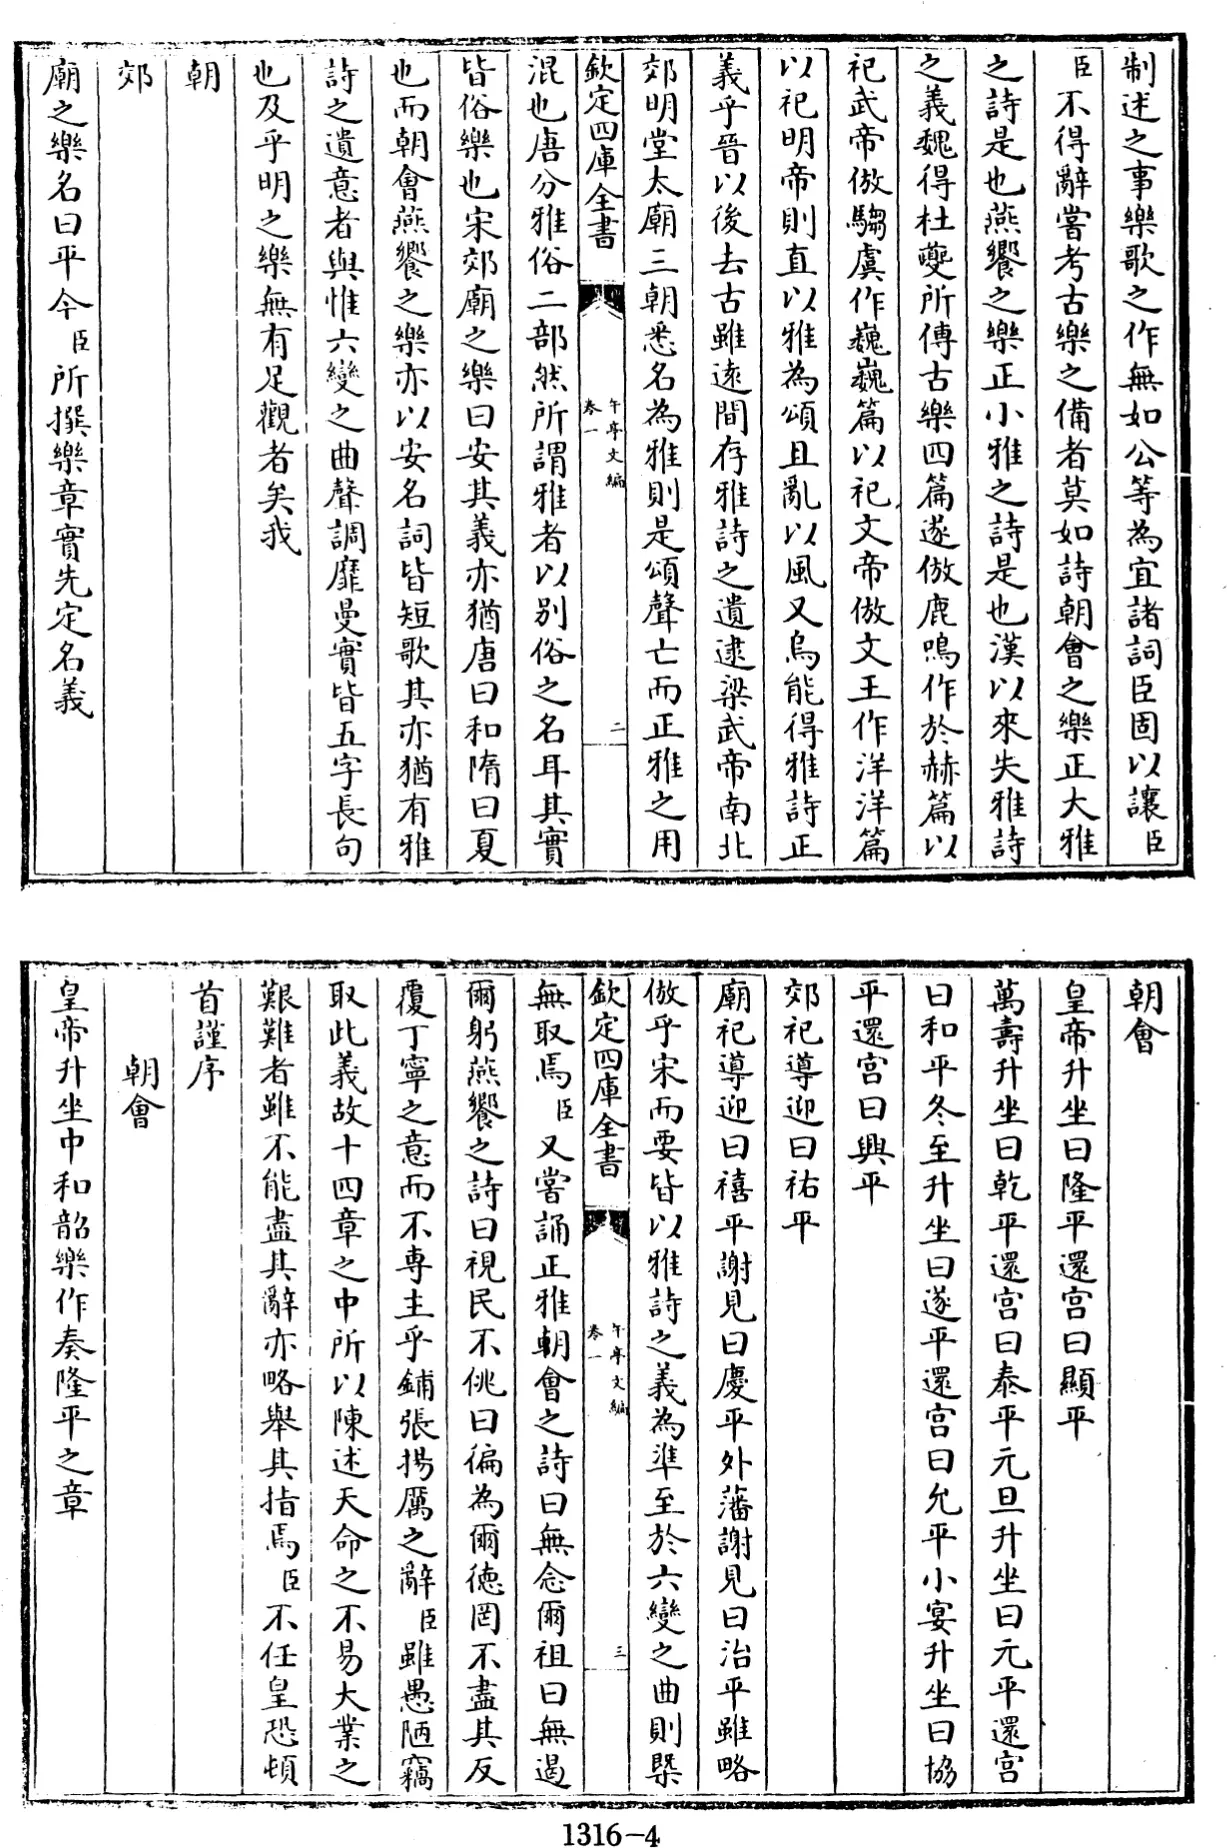 制述之事樂歌之作無如公等為宜諸詞臣固以讓臣
臣不得辭嘗考古樂之備者莫如詩朝會之樂正大雅
之詩是也燕饗之樂正小雅之詩是也漢以來失雅詩
之義魏得杜夔所傳古樂四篇遂倣鹿鳴作於赫篇以
祀武帝倣騶虞作巍巍篇以祀文帝倣文王作洋洋篇
以祀明帝則直以雅為頌且亂以風又烏能得雅詩正
義乎晉以後去古雖逺間存雅詩之遺逮梁武帝南北
郊明堂太廟三朝悉名為雅則是頌聲亡而正雅之用
欽定四庫全書
午亭文編
卷一
二
混也唐分雅俗二部然所謂雅者以别俗之名耳其實
皆俗樂也宋郊廟之樂曰安其義亦猶唐曰和隋曰夏
也而朝會燕饗之樂亦以安名詞皆短歌其亦猶有雅
詩之遺意者與惟六變之曲聲調靡曼實皆五字長句
也及乎明之樂無有足觀者矣我
朝
郊
廟之樂名曰平今臣所撰樂章實先定名義
朝會
皇帝升坐曰隆平還宫曰顯平
萬壽升坐曰乾平還宫曰泰平元旦升坐曰元平還宫
曰和平冬至升坐曰遂平還宫曰允平小宴升坐曰協
平還宫曰興平
郊祀導迎曰祐平
廟祀導迎曰禧平謝見曰慶平外藩謝見曰治平雖略
倣乎宋而要皆以雅詩之義為準至於六變之曲則槩
欽定四庫全書
午亭文編
卷一
三
無取焉臣又嘗誦正雅朝會之詩曰無念爾祖曰無遏
爾躬燕饗之詩曰視民不恌曰徧為爾德罔不盡其反
覆丁寧之意而不専主乎鋪張揚厲之辭臣雖愚陋竊
取此義故十四章之中所以陳述天命之不易大業之
艱難者雖不能盡其辭亦略舉其指焉臣不任皇恐頓
首謹序
朝會
皇帝升坐中和韶樂作奏隆平之章
1316-4